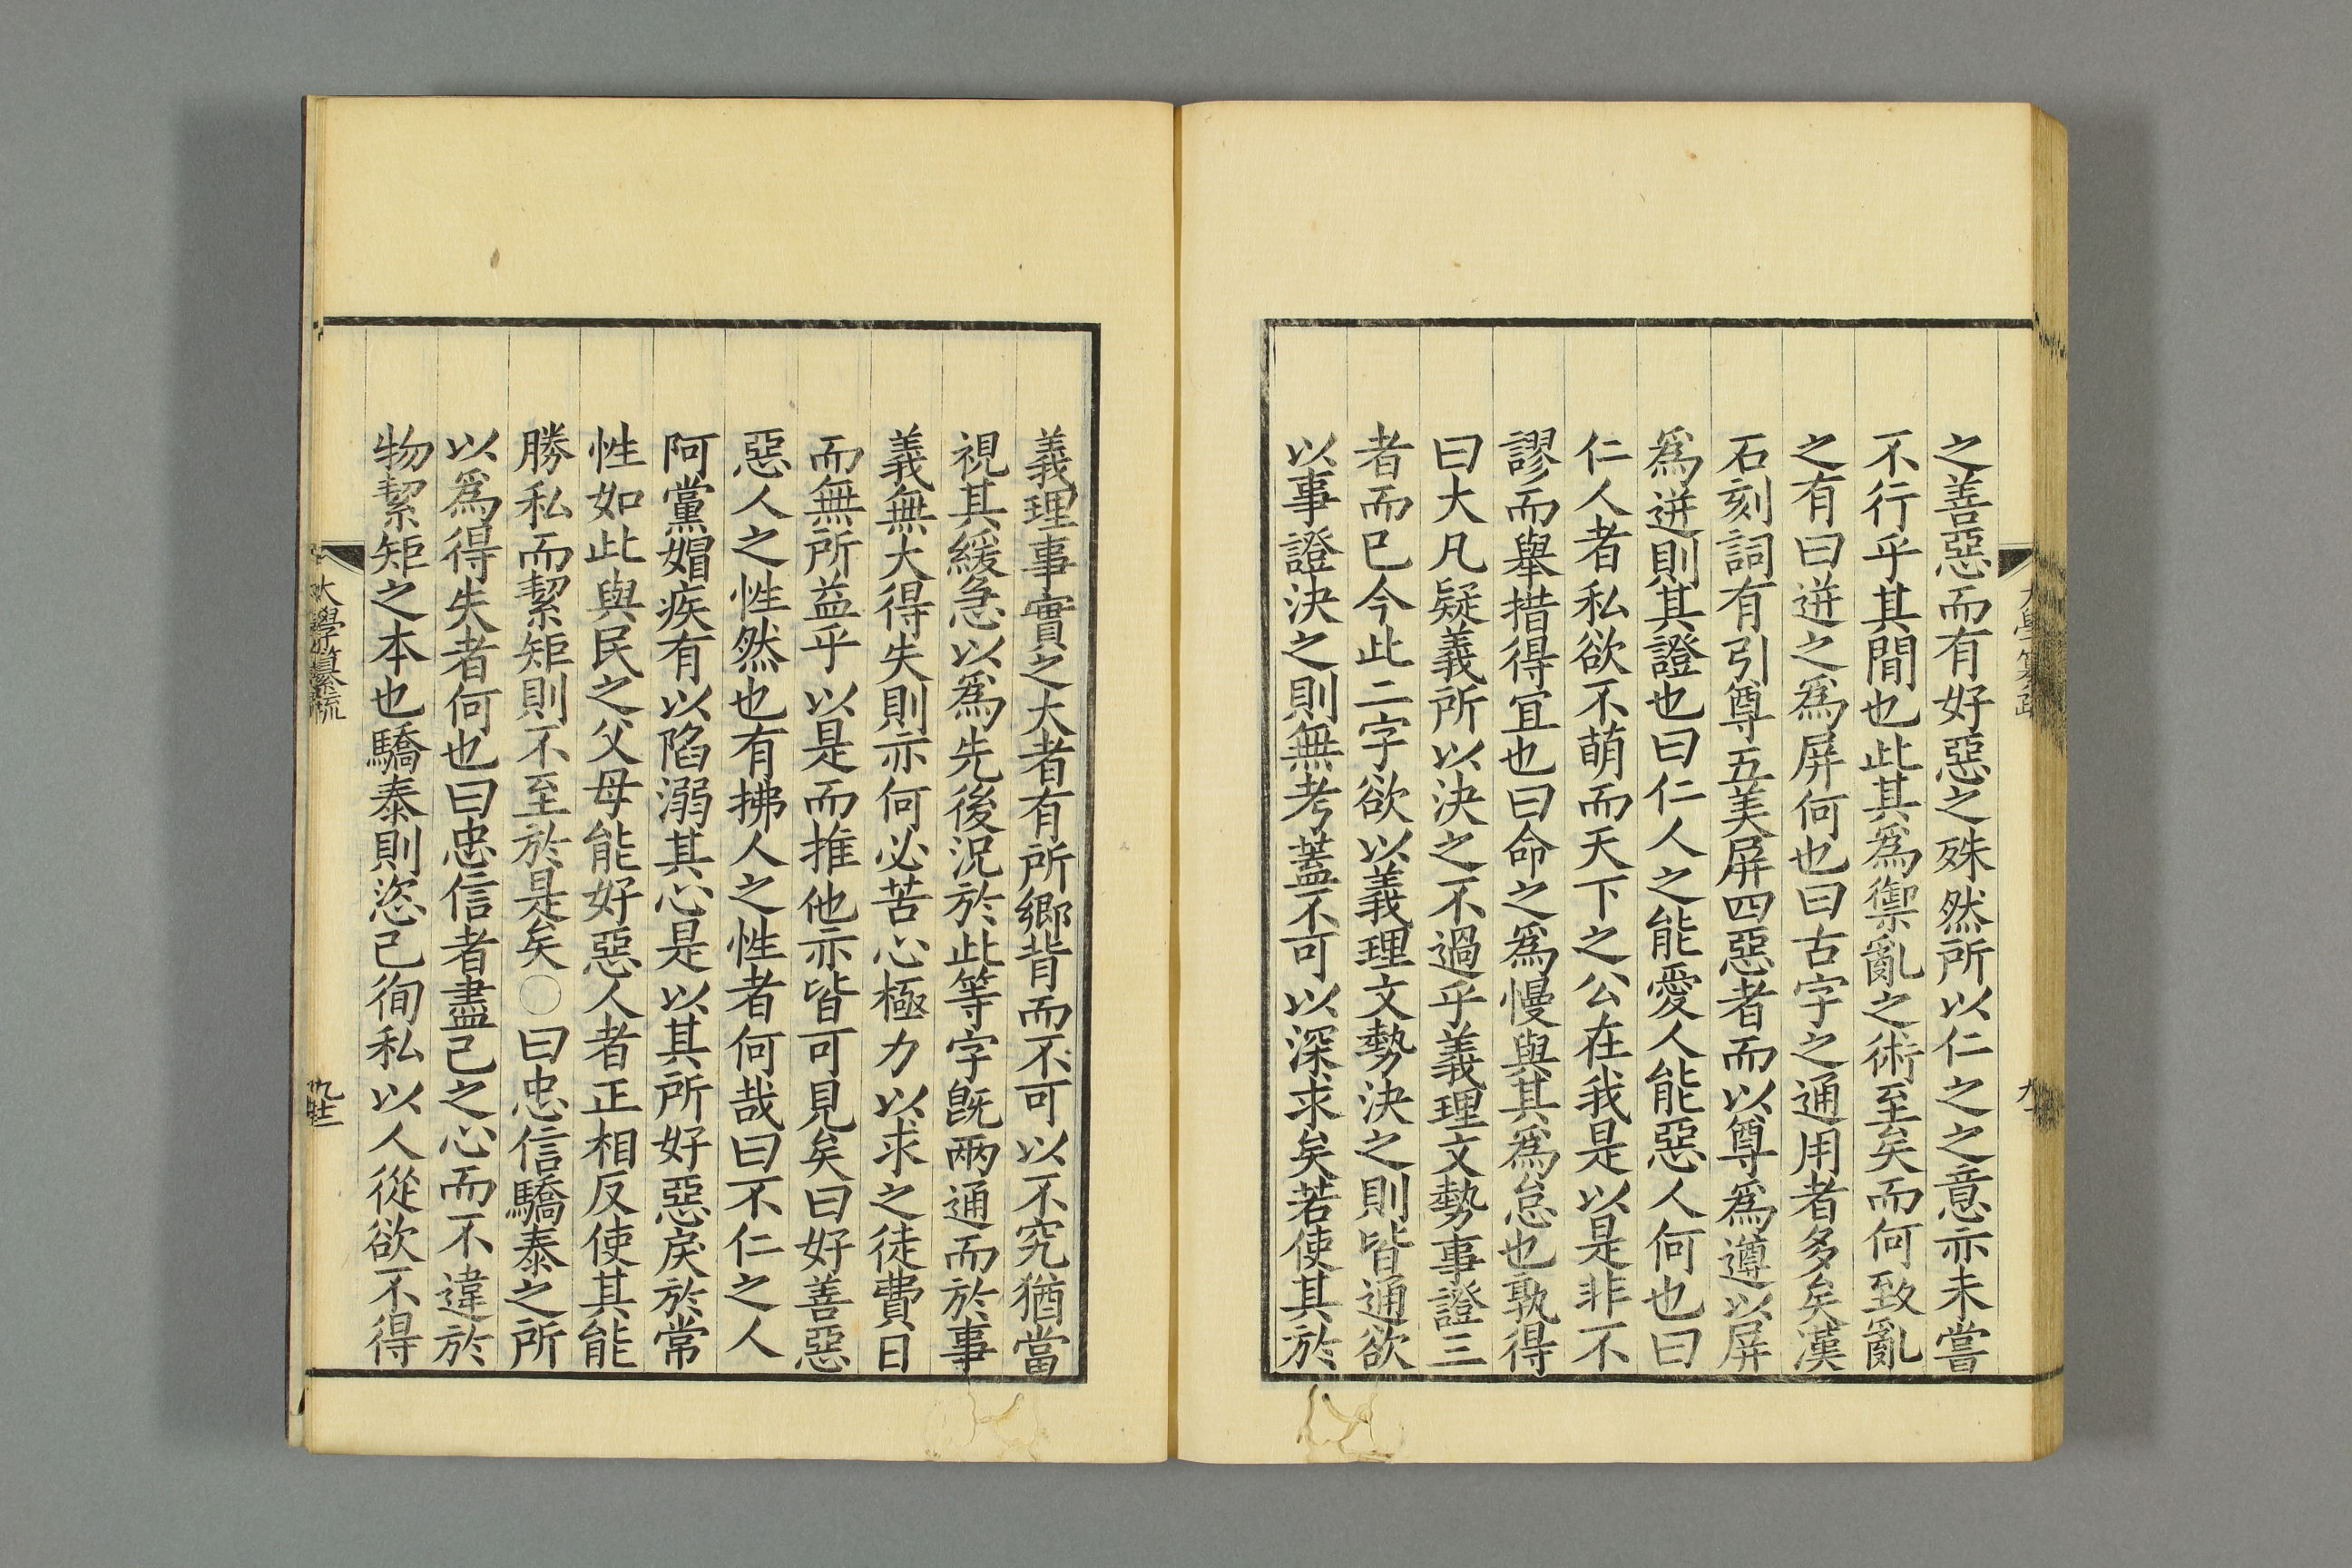 之善惡而有好惡之殊然所以仁之之意亦未嘗
不行乎其間也此其爲禦亂之術至矣而何致亂
之有曰迸之爲屏何也曰古字之通用者多矣漢
石刻詞有引尊五美屏四惡者而以尊爲遵以屏
爲迸則其證也曰仁人之能愛人能惡人何也曰
仁人者私欲不萌而天下之公在我是以是非不
謬而舉措得宜也曰命之爲慢與其爲怠也孰得
曰大凡疑義所以決之不過乎義理文勢事證三
者而已今此二字欲以義理文勢決之則皆通欲
以事證決之則無考蓋不可以深求矣若使其於
義理事實之大者有所鄉背而不可以不究猶當
視其緩急以爲先後況於此等字旣兩通而於事
義無大得失則亦何必苦心極力以求之徒費日
而無所益乎以是而推他亦皆可見矣曰好善惡
惡人之性然也有拂人之性者何哉曰不仁之人
阿黨媢疾有以陷溺其心是以其所好惡戾於常
性如此與民之父母能好惡人者正相反使其能
勝私而絜矩則不至於是矣○曰忠信驕泰之所
以爲得失者何也曰忠信者盡己之心而不違於
物絜矩之本也驕泰則恣己徇私以人從欲不得
大學纂疏